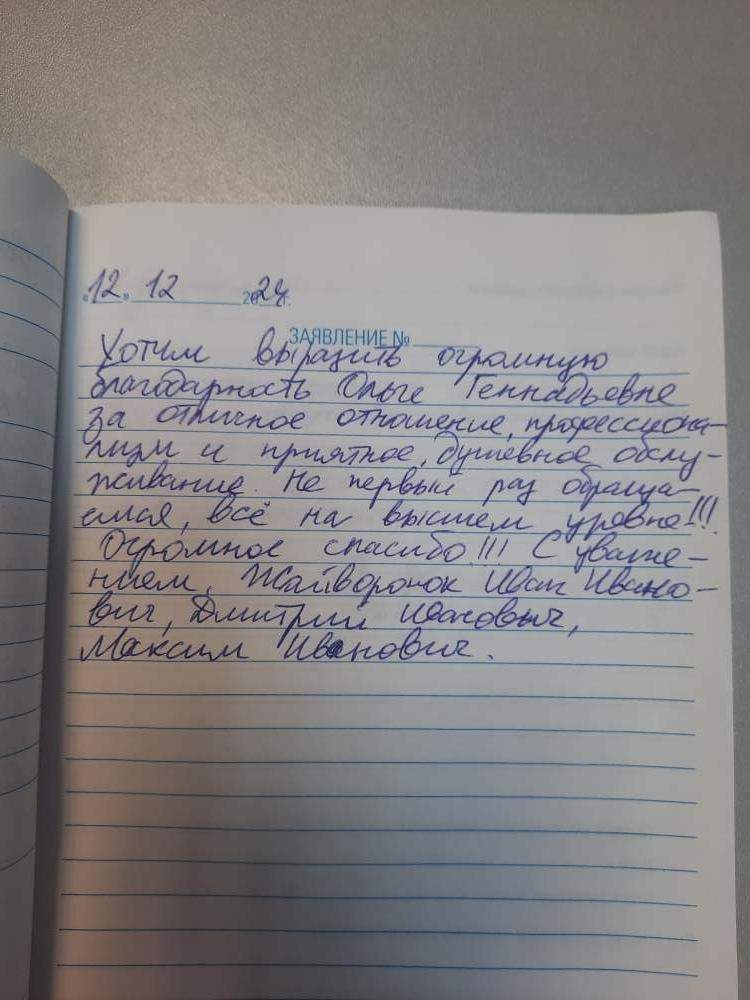 «12» 12 2024г.
ЗАЯВЛЕНИЕ №
Хотим выразить огромную
благодарность Ольге Геннадьевне
за отличное отношение, профессиона-
лизм и приятное, душевное обслу-
живание. Не первый раз обраща-
емся, всё на высшем уровне!!!
Огромное спасибо!!! С уваже-
нием, Жайворонок Иван Ивано-
вич, Дмитрий Иванович,
Максим Иванович.